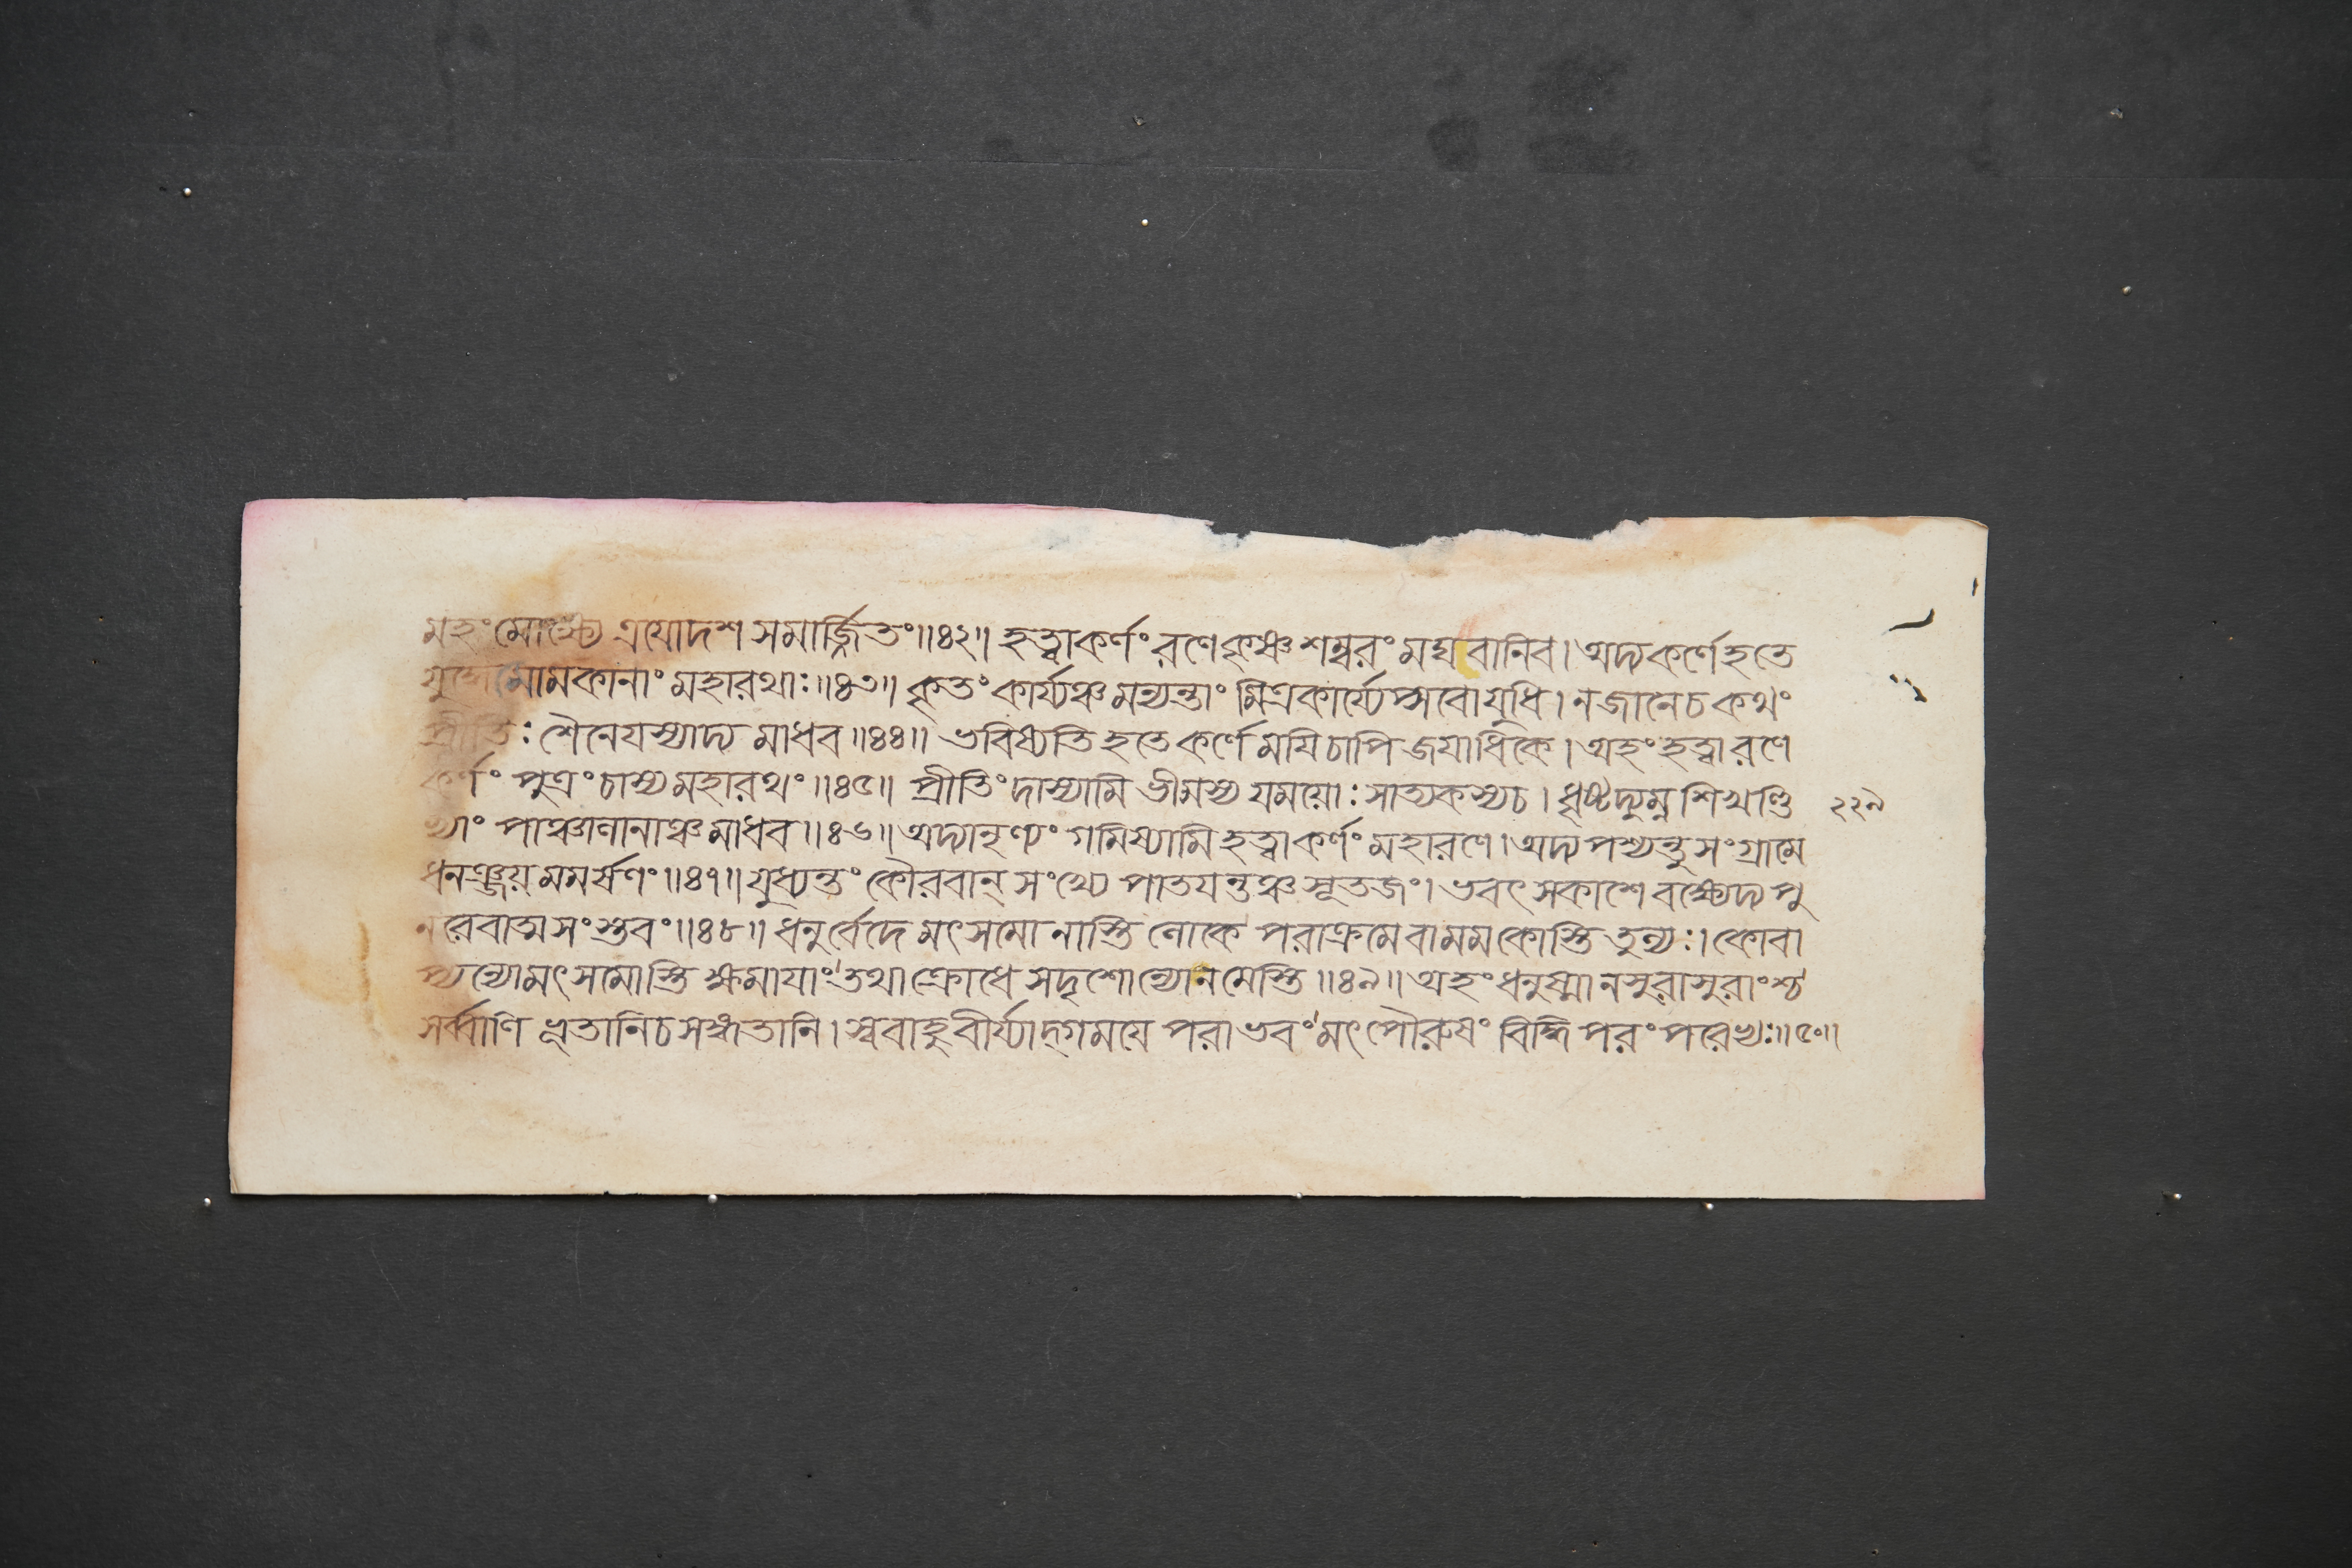 মহং মোক্ষ্যে ত্রয়োদশ সমার্জ্জিতং॥৪২॥ হত্বাকর্ণং রণেকৃষ্ণ শম্বরং মঘবানিব। অদ্যকর্ণেহতে
যুদ্ধে সোমকানাং মহারথাঃ॥৪৩॥ কৃতং কার্য্যঞ্চ মন্যন্তাং মিত্রকার্য্যেপ্সবোযুধি। নজানেচ কথং
প্রীতিঃ শৈনেযস্যাদ্য মাধব॥৪৪॥ ভবিষ্যতি হতেকর্ণে মযিচাপি জযাধিকে। অহং হত্বারণে
কর্ণং পুত্রং চাস্য মহারথং॥৪৫॥ প্রীতিং দাস্যামি ভীমস্য যময়োঃ সাত্যকস্যচ। ধৃষ্টদ্যুম্ন শিখণ্ডি
২২৯
ভ্যাং পাঞ্চালানাঞ্চ মাধব॥৪৬॥ অদ্যানৃণ্যং গমিষ্যামি হত্বাকর্ণং মহারণে। অদ্যপশ্যন্তু সংগ্রামে
ধনঞ্জয় মমর্ষণং॥৪৭॥ যুধ্যন্তং কৌরবান্ সংখ্যে পাতযন্তঞ্চ সূতজং। ভবৎ সকাশে বক্ষ্যেদ্য পু
নরেবাত্মসংস্তবং॥৪৮॥ ধনুর্ব্বেদে মৎসমো নাস্তি লোকে পরাক্রমেবামমকোস্তি তুল্যঃ। কোবা
প্যন্যোমৎসমোস্তি ক্ষমাযাং তথাক্রোধে সদৃশোন্যোনমেস্তি॥৪৯॥ অহং ধনুষ্মানসুরাসুরাংশ্চ
সর্ব্বাণি ভূতানিচ সঙ্গতানি। স্ববাহুবীর্য্যাদ্গময়ে পরাভবং মৎপৌরুষং বিদ্ধি পরং পরেভ্যঃ॥৫০॥